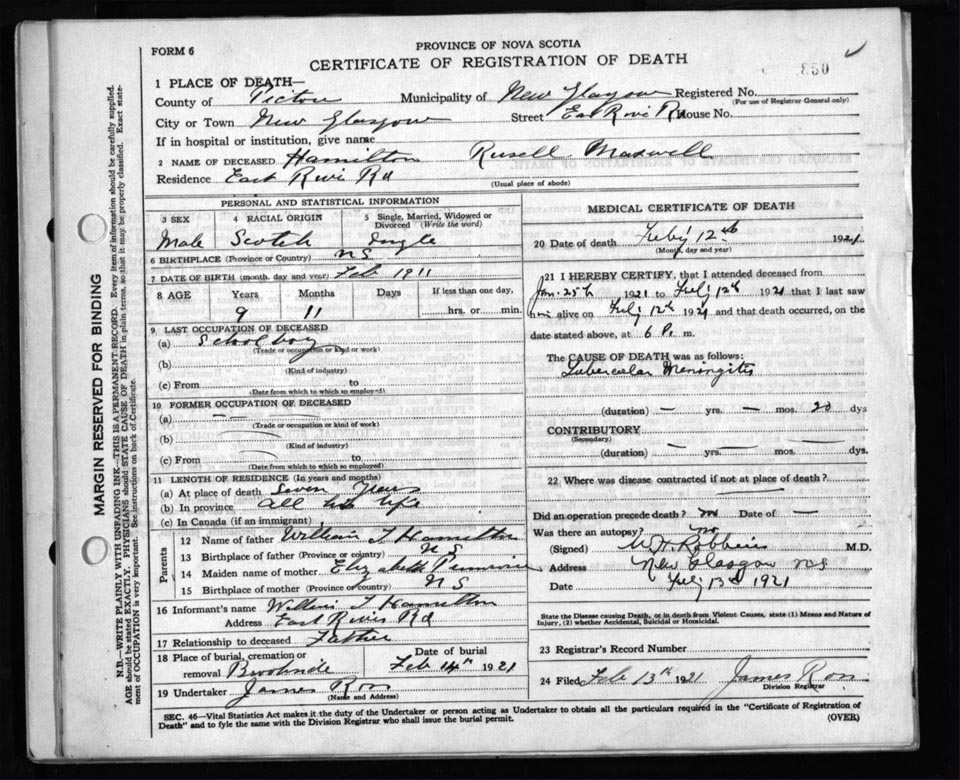 FORM 6
PROVINCE OF NOVA SCOTIA
CERTIFICATE OF REGISTRATION OF DEATH
850
1 PLACE OF DEATH—
County of Pictou Municipality of New Glasgow Registered No.
(For use of Registrar General only)
City or Town New Glasgow Street East River Rd House No.
If in hospital or institution, give name
2 NAME OF DECEASED Hamilton Russell Maxwell
Residence East River Rd
(Usual place of abode)
PERSONAL AND STATISTICAL INFORMATION
3 SEX
Male
4 RACIAL ORIGIN
Scotch
5 Single, Married, Widowed or Divorced (Write the word)
Single
6 BIRTHPLACE (Province or Country) NS
7 DATE OF BIRTH (month, day and year) Feb 1911
8 AGE Years Months Days If less than one day,
9 11 hrs. or min.
9 LAST OCCUPATION OF DECEASED
(a) School boy
(Trade or occupation or kind of work)
(b)
(Kind of industry)
(c) From to
(Date from which to which so employed)
10 FORMER OCCUPATION OF DECEASED
(a) — —
(Trade or occupation or kind of work)
(b)
(Kind of industry)
(c) From to
(Date from which to which so employed)
11 LENGTH OF RESIDENCE (In years and months)
(a) At place of death Seven Years
(b) In province all his life
(c) In Canada (if an immigrant)
Parents
12 Name of father William J Hamilton
13 Birthplace of father (Province or country) NS
14 Maiden name of mother Elizabeth Primrose
15 Birthplace of mother (Province or country) NS
16 Informant's name William J Hamilton
Address East River Rd
17 Relationship to deceased Father
18 Place of burial, cremation or removal Brookside
Date of burial
Feb 14th 1921
19 Undertaker James Ross
(Name and Address)
MEDICAL CERTIFICATE OF DEATH
20 Date of death Feby 12th 1921
(Month, day and year)
21 I HEREBY CERTIFY, that I attended deceased from
Jan. 25th 1921 to Feby 12th 1921 that I last saw
him alive on Feby 12th 1921 and that death occurred, on the
date stated above, at 6 P. m.
The CAUSE OF DEATH was as follows:
Tubercular Meningitis
(duration) — yrs. — mos. 20 dys
CONTRIBUTORY
(Secondary)
(duration) — yrs. — mos. dys.
22 Where was disease contracted if not at place of death?
Did an operation precede death? no Date of —
Was there an autopsy? no
(Signed) M.D.
Address New Glasgow NS
Date Feby 13th 1921
State the Disease causing Death, or in death from Violent Causes, state (1) Means and Nature of
Injury, (2) whether Accidental, Suicidal or Homicidal.
23 Registrar's Record Number
24 Filed Feb 13th 1921 James Ross
Division Registrar
SEC. 46—Vital Statistics Act makes it the duty of the Undertaker or person acting as Undertaker to obtain all the particulars required in the "Certificate of Registration of
Death" and to fyle the same with the Division Registrar who shall issue the burial permit.
(OVER)
MARGIN RESERVED FOR BINDING
N.B.—WRITE PLAINLY WITH UNFADING INK—THIS IS A PERMANENT RECORD. Every item of information should be carefully supplied.
AGE should be stated EXACTLY. PHYSICIANS should STATE CAUSE OF DEATH in plain terms, so that it may be properly classified. Exact state-
ment of OCCUPATION is very important. See instructions on back of Certificate.